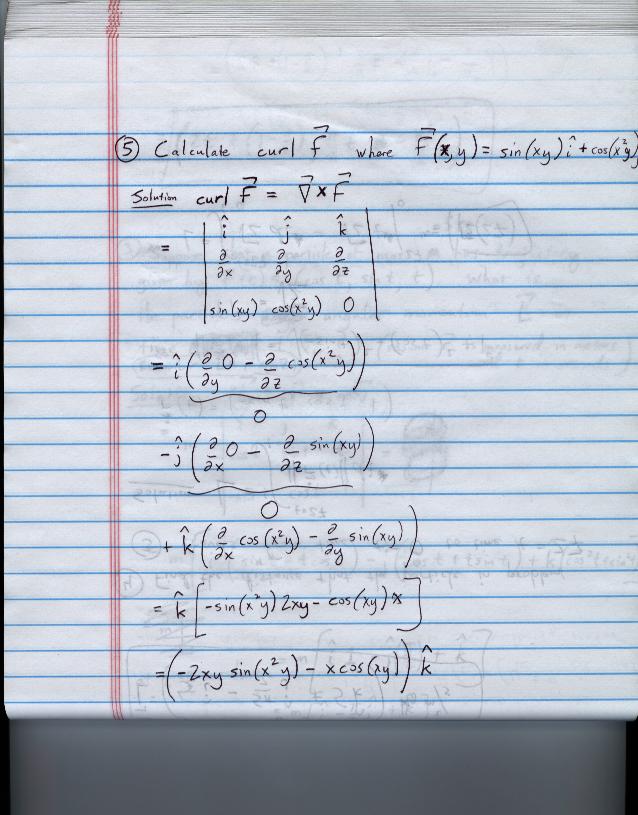 ⑤ Calculate curl F⃗ where F⃗(x,y) = sin(xy) î + cos(x²y)
Solution curl F⃗ = ∇⃗ × F⃗
= | î ĵ k̂
∂/∂x ∂/∂y ∂/∂z
sin(xy) cos(x²y) 0 |
= î (∂/∂y 0 - ∂/∂z cos(x²y))
0
-ĵ (∂/∂x 0 - ∂/∂z sin(xy))
0
+ k̂ (∂/∂x cos(x²y) - ∂/∂y sin(xy))
= k̂ [-sin(x²y) 2xy - cos(xy) x]
= (-2xy sin(x²y) - x cos(xy)) k̂